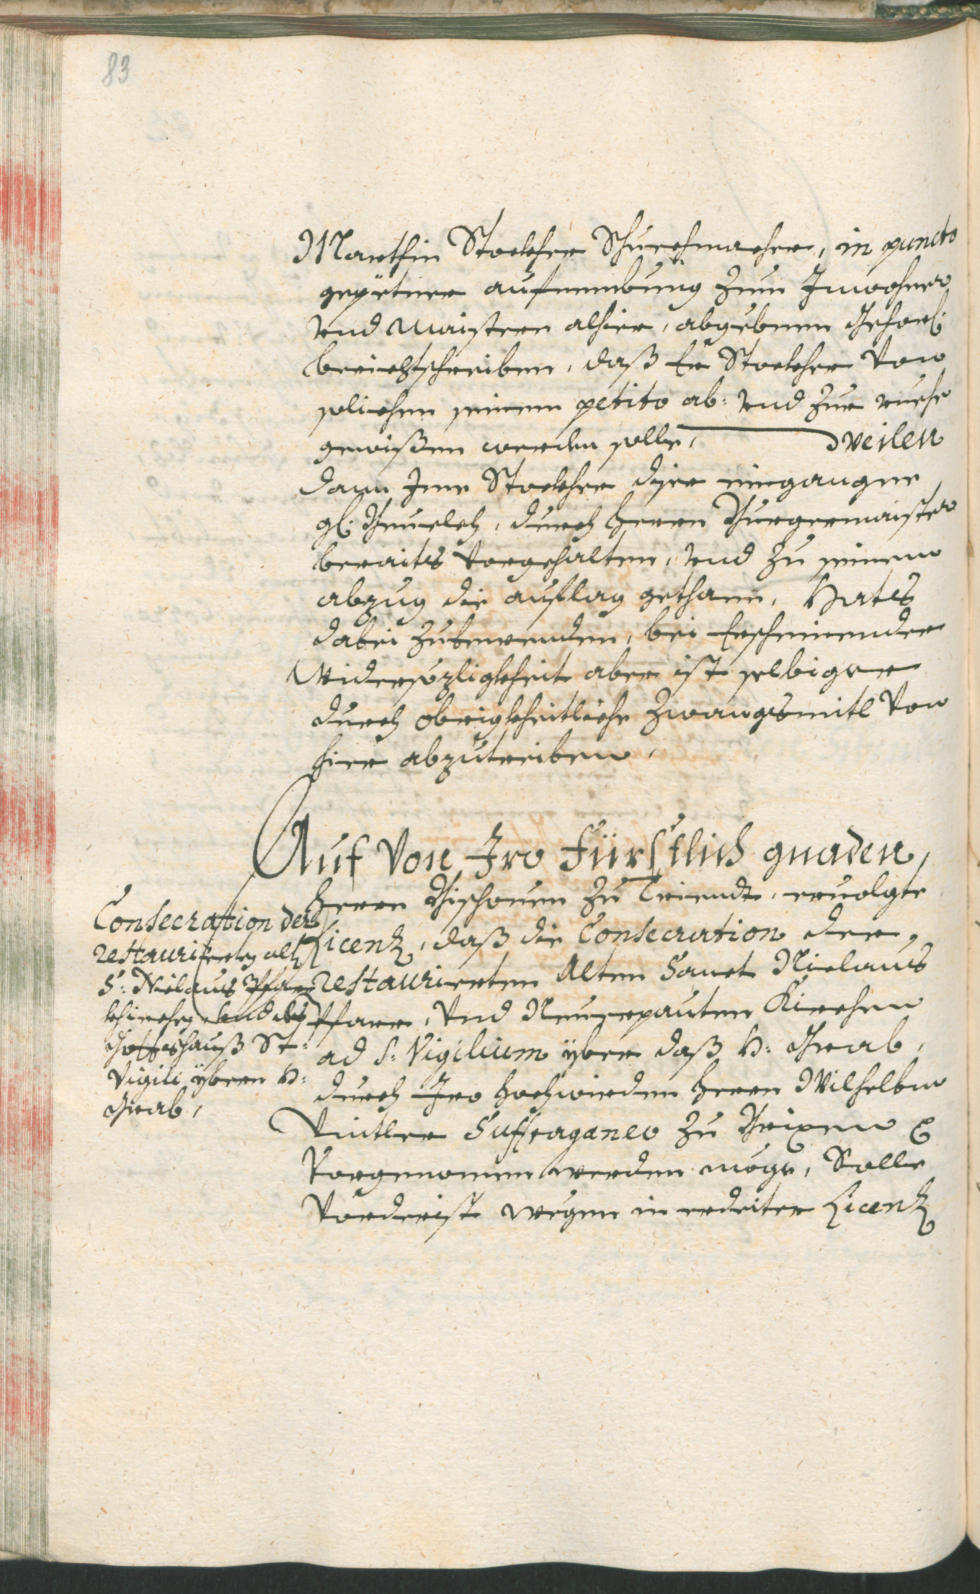 83
Marthin Stockher Schuechmacher, in puncto
gepetner aufnembung zum Inwohner
vnd Maistern alhier, abgebnem Gehorß:
berichtschreiben, daß Er Stockher von
solichem seinem petito ab: vnd zur ruehe
gewißen werden solle, Weilen
dann Ime Stockher dise eingangne
gß: Beuelch, durch herrn Burgermaister
beraits vorgehalten, vnd zu seinem
abzug die auflag gethann, Hats
dabei zubewenden, bei Erscheinender
Widersözligkheit aber ist selbiger
durch obrigkheitliche Zwangsmitl von
hier abzutreiben.
Auf von Iro Fürstlich gnaden,
Herrn Bischouen zu Triendt, ervolgte
Licenz, daß die Consecration der,
restaurierten Alten Sanct Niclaus
Pfarr, vnd Neuerpauten Kirchen
ad S: Vigilium yber daß H: Grab,
durch Iro hochwürden herrn Wilhelbm
Vintler Suffraganeo zu Brixen &
vorgenomen werden möge, Solle
vorderist wegen in rediter Licenz
Consecration der
restaurierten alt
S: Niclaus Pfarr
khirchen vnd des
Gottshauß St:
Vigili ybern H:
Grab,